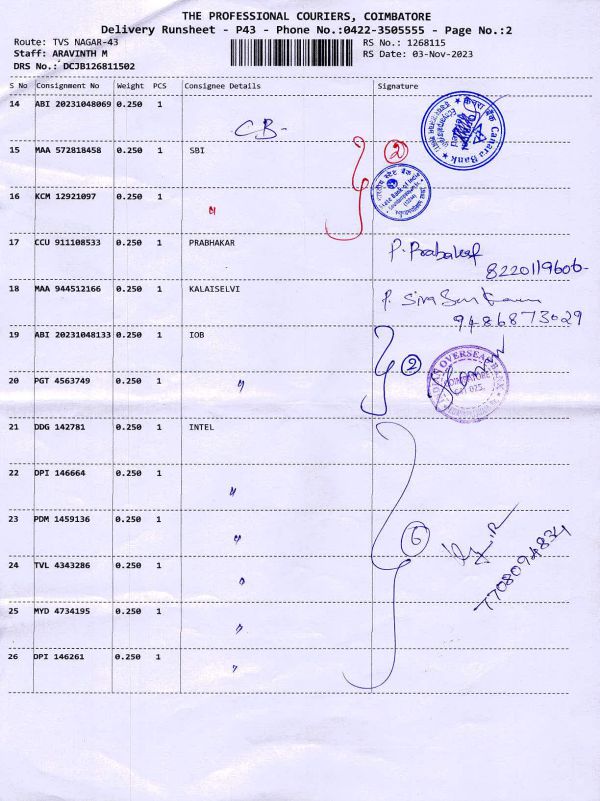 THE PROFESSIONAL COURIERS, COIMBATORE
Delivery Runsheet - P43 - Phone No.:0422-3505555 - Page No.:2
Route: TVS NAGAR-43 RS No.: 1268115
Staff: ARAVINTH M RS Date: 03-Nov-2023
DRS No.: DCJB126811502
S No Consignment No Weight PCS Consignee Details Signature
14 ABI 20231048069 0.250 1 CB-
केनरा बैंक Canara Bank
15 MAA 572818458 0.250 1 SBI 2
भारतीय स्टेट बैंक State Bank of India
16 KCM 12921097 0.250 1 "
17 CCU 911108533 0.250 1 PRABHAKAR P. Prabakar
8220119606-
18 MAA 944512166 0.250 1 KALAISELVI
9486873029
19 ABI 20231048133 0.250 1 IOB 2
INDIAN OVERSEAS BANK
COIMBATORE
641 025.
20 PGT 4563749 0.250 1 "
21 DDG 142781 0.250 1 INTEL
22 DPI 146664 0.250 1 "
23 PDM 1459136 0.250 1 " 6
7708094834
24 TVL 4343286 0.250 1 "
25 MYD 4734195 0.250 1 "
26 DPI 146261 0.250 1 "